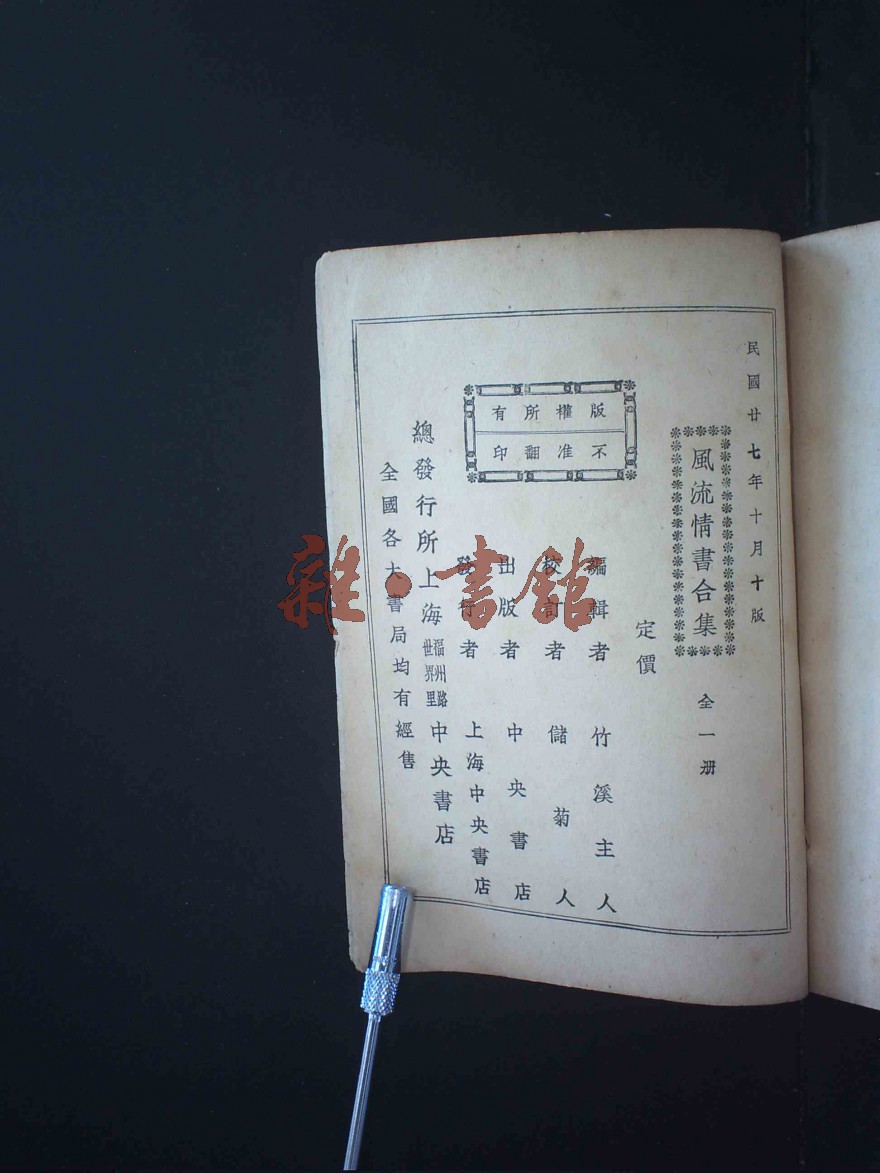 民國廿七年十月十版
風流情書合集
全一册
定價
版權所有
不准翻印
編輯者 竹溪主人
校訂者 儲菊人
出版者 中央書店
發行者 上海中央書店
總發行所上海福州路世界里中央書店
全國各大書局均有經售
雜·書館